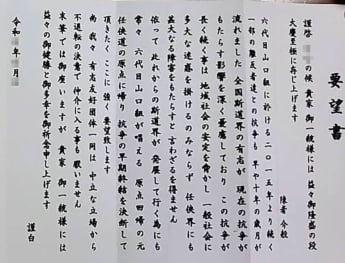 要望書
謹啓
の候 貴家 御一統様には 益々御隆盛の段
大慶至極に存じ上げます
陳者 今般
六代目山口組に於ける 二〇一五年より続く
一部の離反者達との抗争も 早や十年の歳月が
流れました 全国斯道界の有志が 現在の抗争が
もたらす影響を深く憂慮しており この抗争が
長く続く事は 地域社会の安定を脅かし 一般社会に
多大な迷惑を掛けるのみならず 任侠界にも
甚大なる障害をもたらすと言わざるを得ません
依って 此れからの斯道界が 発展して行く為にも
常々 六代目山口組が唱える 原点回帰の元
任侠道の原点に帰り 抗争の早期終結を決断して
頂きたく ここに強く要望致します
尚 我々 有志友好団体一同は 中立な立場から
不退転の決意で 仲介に入る事も厭いません
末筆では御座いますが 貴家 御一統様には
益々の御健勝と御多幸を御祈念申し上げます
謹白
令和 年 月